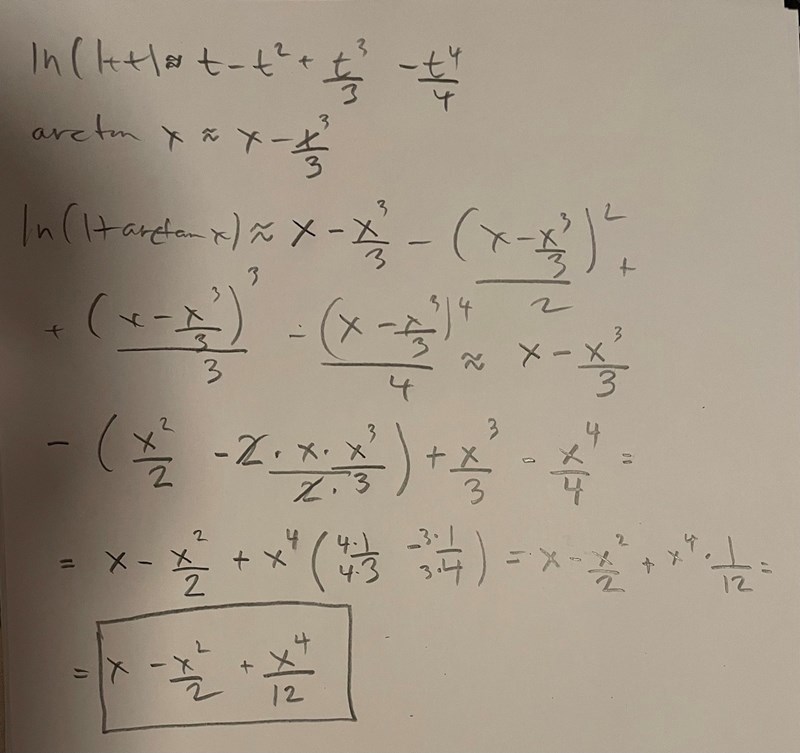 ln(1+t) ≈ t - t² + t³/3 - t⁴/4
arctan x ≈ x - x³/3
ln(1+arctan x) ≈ x - x³/3 - (x - x³/3)²/2 +
+ (x - x³/3)³/3 - (x - x³/3)⁴/4 ≈ x - x³/3
- (x²/2 - 2·x·x³/2·3) + x³/3 - x⁴/4 =
= x - x²/2 + x⁴(4·1/4·3 - 3·1/3·4) = x - x²/2 + x⁴·1/12 =
= x - x²/2 + x⁴/12